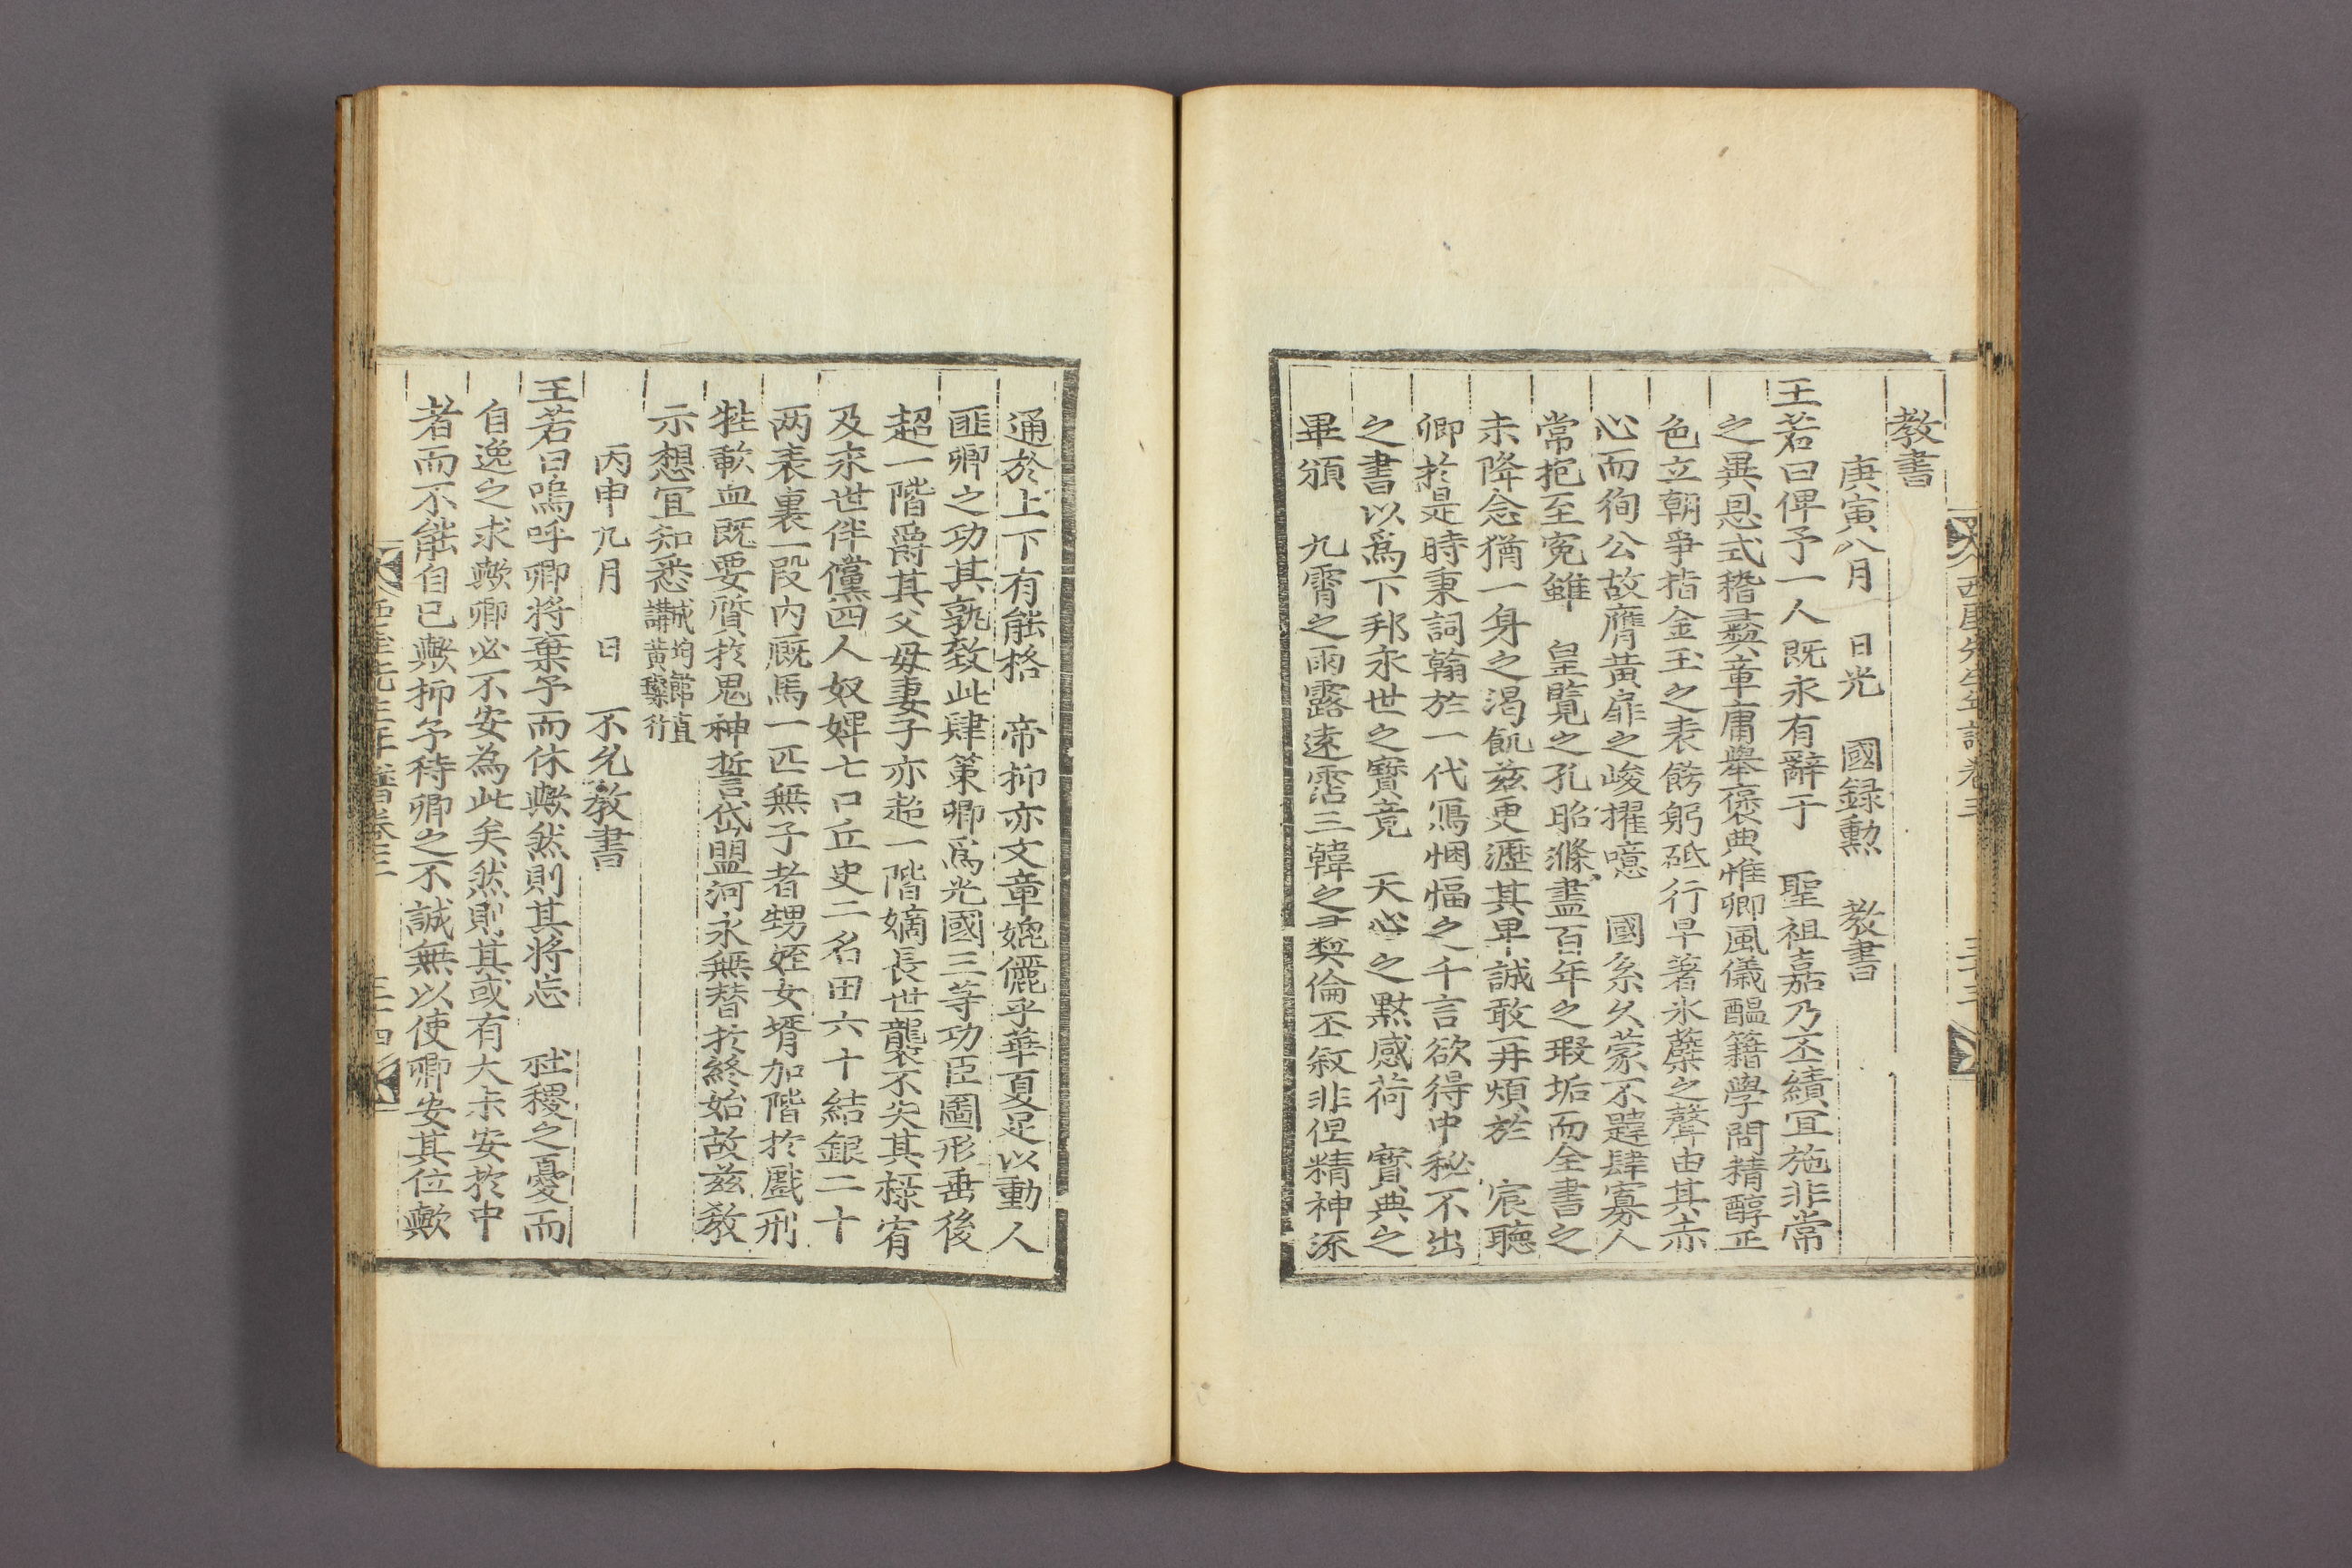 西厓先生年譜卷三
三十三
教書
庚寅八月 日光 國録勳 教書
王若曰俾予一人旣永有辭于 聖祖嘉乃丕績宜施非常
之異恩式稽彛章庸擧褒典惟卿風儀醞籍學問精醇正
色立朝爭指金玉之表餙躬砥行早著氷蘗之聲由其赤
心而徇公故膺黃扉之峻擢噫 國系久蒙不韙肆寡人
常抱至寃雖 皇覽之孔昭滌盡百年之瑕垢而全書之
未降念猶一身之渴飢茲更瀝其卑誠敢再煩於 宸聽
卿於是時秉詞翰於一代寫悃愊之千言欲得中秘不出
之書以爲下邦永世之寶竟 天心之黙感荷 寶典之
畢頒 九霄之雨露遠霑三韓之彛倫丕叙非但精神逐
通於上下有能格 帝抑亦文章媲儷乎華夏足以動人
匪卿之功其孰致此肆策卿爲光國三等功臣圖形垂後
超一階爵其父母妻子亦超一階嫡長世襲不失其祿宥
及永世伴儻四人奴婢七口丘史二名田六十結銀二十
两表裏一段内廐馬一匹無子者甥姪女壻加階於戲刑
牲歃血旣要質於鬼神誓岱盟河永無替於終始故茲敎
示想宜知悉 成均舘直講黃璨行
丙申九月 日 不允教書
王若曰嗚呼卿將棄予而休歟然則其將忘 社稷之憂而
自逸之求歟卿必不安為此矣然則其或有大未安於中
者而不能自已歟抑予待卿之不誠無以使卿安其位歟
西厓先生年譜卷三
三十四